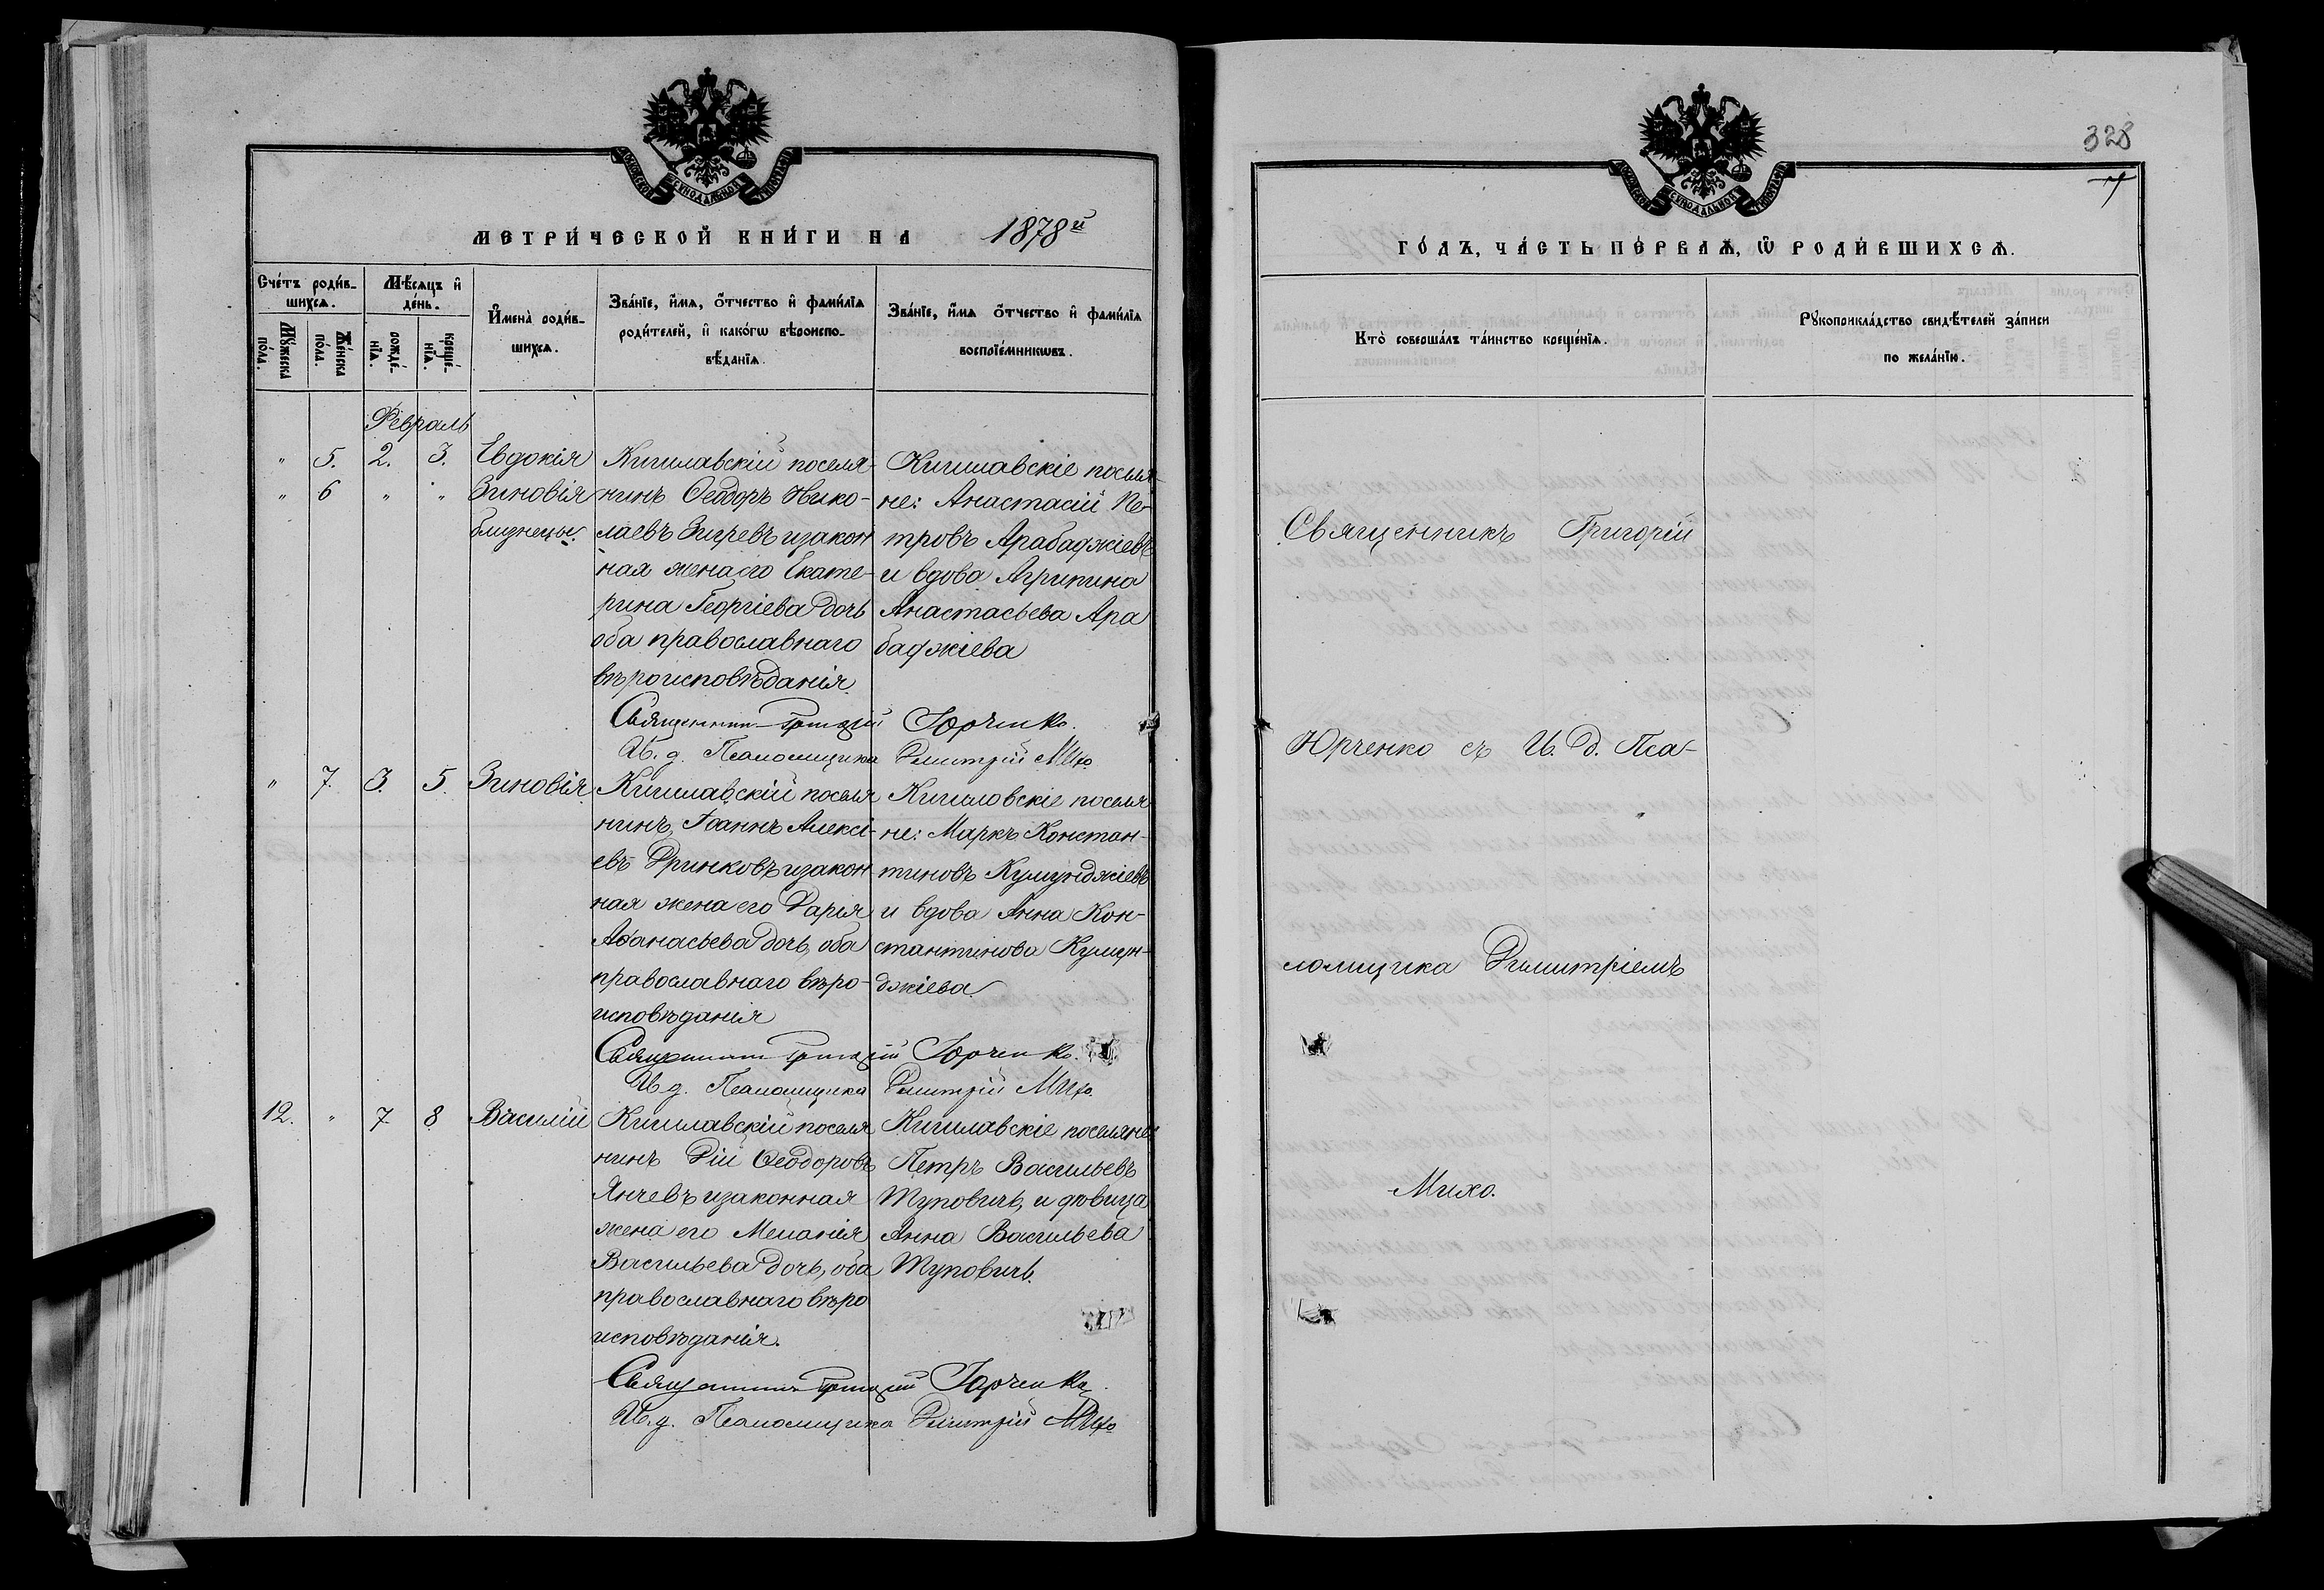 МОСКОВСКОЙ СѴНОДАЛЬНОЙ ТИПОГРАФІИ
МЕТРИ́ЧЕСКОЙ КНИ́ГИ НА 1878й
Сче́тъ роди́в-
шихся.
Мѣ́сяцъ и҆
де́нь.
Мꙋ́жеска
по́ла.
Же́нска
по́ла.
рожде́-
нїѧ.
креще́-
нїѧ.
И҆мена̀ роди́в-
шихся.
Зва́нїе, и҆́мѧ, ѻ҆́тчество и҆ фами́лїѧ
роди́телей, и҆ како́гѡ вѣроиспо-
вѣ́данїѧ.
Зва́нїе, и҆́мѧ ѻ҆́тчество и҆ фами́лїѧ
воспрїе́мникѡвъ.
Февраль
" 5. 2. 3. Евдокія
" 6 " " Зиновія
близнецы.
Кишлавскій поселя-
нинъ Ѳеодоръ Нико-
лаевъ Зигревъ изакон
ная жена его Екате-
рина Георгіева дочь
оба православнаго
вѣроисповѣданія.
Кишлавскіе поселя-
не: Анастасій Пе-
тровъ Арабаджіевъ
и вдова Агрипина
Анастасьева Ара
баджіева
Священникъ Григорій Юрченко.
И. д. Псаломщика Димитрій Михо.
" 7. 3. 5. Зиновія
Кишлавскій поселя
нинъ, Іоаннъ Алексі-
евъ Дринковъ изакон
ная жена его Дарія
Аѳанасьева дочь, оба
православнаго вѣро-
исповѣданія
Кишловскіе поселя
не: Маркъ Констан-
тиновъ Куюунджіевъ
и вдова Анна Кон-
стантинова Куюун-
джіева.
Священникъ Григорій Юрченко.
И. д. Псаломщика Димитрій Михо.
12. " 7 8 Василій
Кишлавскій поселя
нинъ Дій Ѳеодоровъ
Янчевъ изаконная
жена его Меланія
Васильева дочь, оба
православнаго вѣро
исповѣданія.
Кишлавскіе поселяне:
Петръ Васильевъ
Туповичъ, и дѣвица
Анна Васильева
Туповичъ.
Священникъ Григорій Юрченко.
И. д. Псаломщика Димитрій Михо
328
7
МОСКОВСКОЙ СѴНОДАЛЬНОЙ ТИПОГРАФІИ
ГО́ДЪ, ЧА́СТЬ ПЕ́РВАѦ, Ѿ РОДИ́ВШИХСѦ.
Кто̀ соверша́лъ та́инство креще́нїѧ.
Рꙋкоприкла́дство свидѣ́телей за́писи
по жела́нїю.
Священникъ Григорій
Юрченко съ И. д. Пса-
ломщика Димитріемъ
Михо.